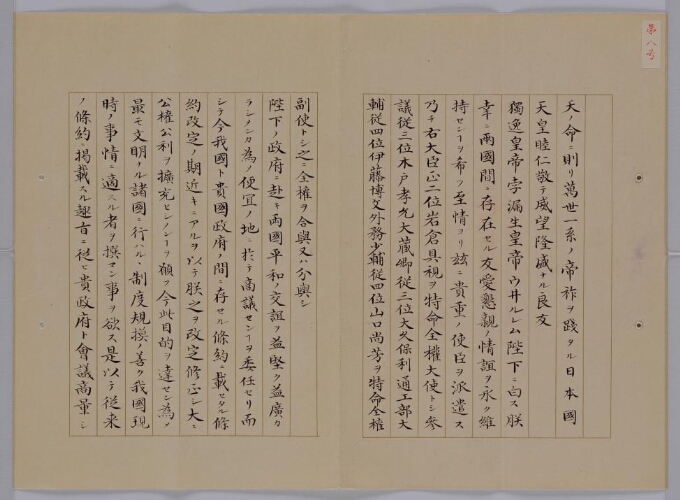 第八号
天ノ命ニ則リ萬世一系ノ帝祚ヲ踐タル日本國
天皇睦仁敬テ威望隆盛ナル良友
獨逸皇帝孛漏生皇帝ウ井ルレム陛下ニ白ス朕
幸ニ兩國間ニ存在セル友愛懇親ノ情誼ヲ永ク維
持センヿヲ希フ至情ヨリ玆ニ貴重ノ使臣ヲ派遣ス
乃チ右大臣正二位岩倉具視ヲ特命全權大使トシ參
議從三位木戸孝允大藏卿從三位大久保利通工部大
輔從四位伊藤博文外務少輔從四位山口尚芳ヲ特命全權
副使トシ之ニ全權ヲ合與又ハ分與シ
陛下ノ政府ニ赴キ兩國平和ノ交誼ヲ益堅ク益廣カ
ラシメンカ為メ便宜ノ地ニ於テ商議センヿヲ委任セリ而
シテ今我國ト貴國政府ノ間ニ存セル條約ニ載セタル條
約改定ノ期近キニアルヲ以テ朕之ヲ改定修正シ大ニ
公權公利ヲ擴充センノヿヲ願フ今此目的ヲ達セン為メ
最モ文明ナル諸國ニ行ハル丶制度規模ノ善ク我國現
時ノ事情ニ適スル者ヲ撰マン事ヲ欲ス是ヲ以テ従来
ノ條約ニ掲載スル趣旨ニ従ヒ貴政府ト會議商量シ